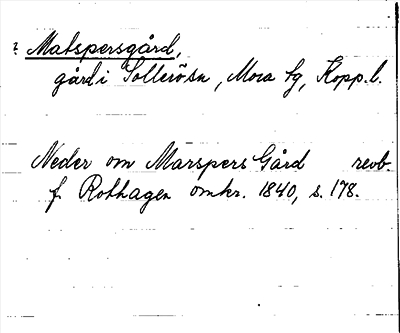 ? Matspersgård,
gård i Sollerösn, Mora sg, Kopp. l.
Neder om Marspers Gård revb.
f. Rothagen omkr. 1840, s. 178.